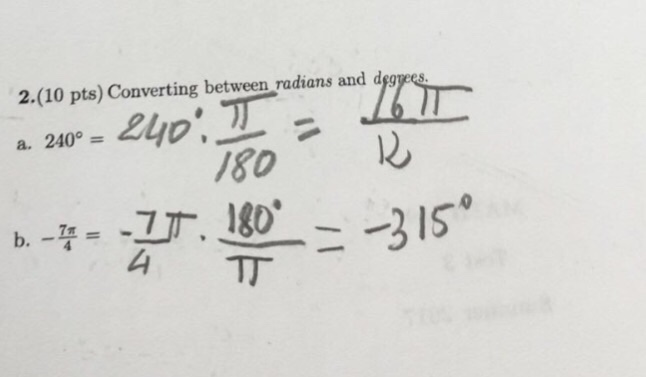 2.(10 pts) Converting between radians and degrees.
a. 240° = 240° · π/180 = 16π/12
b. -7π/4 = -7π/4 · 180°/π = -315°